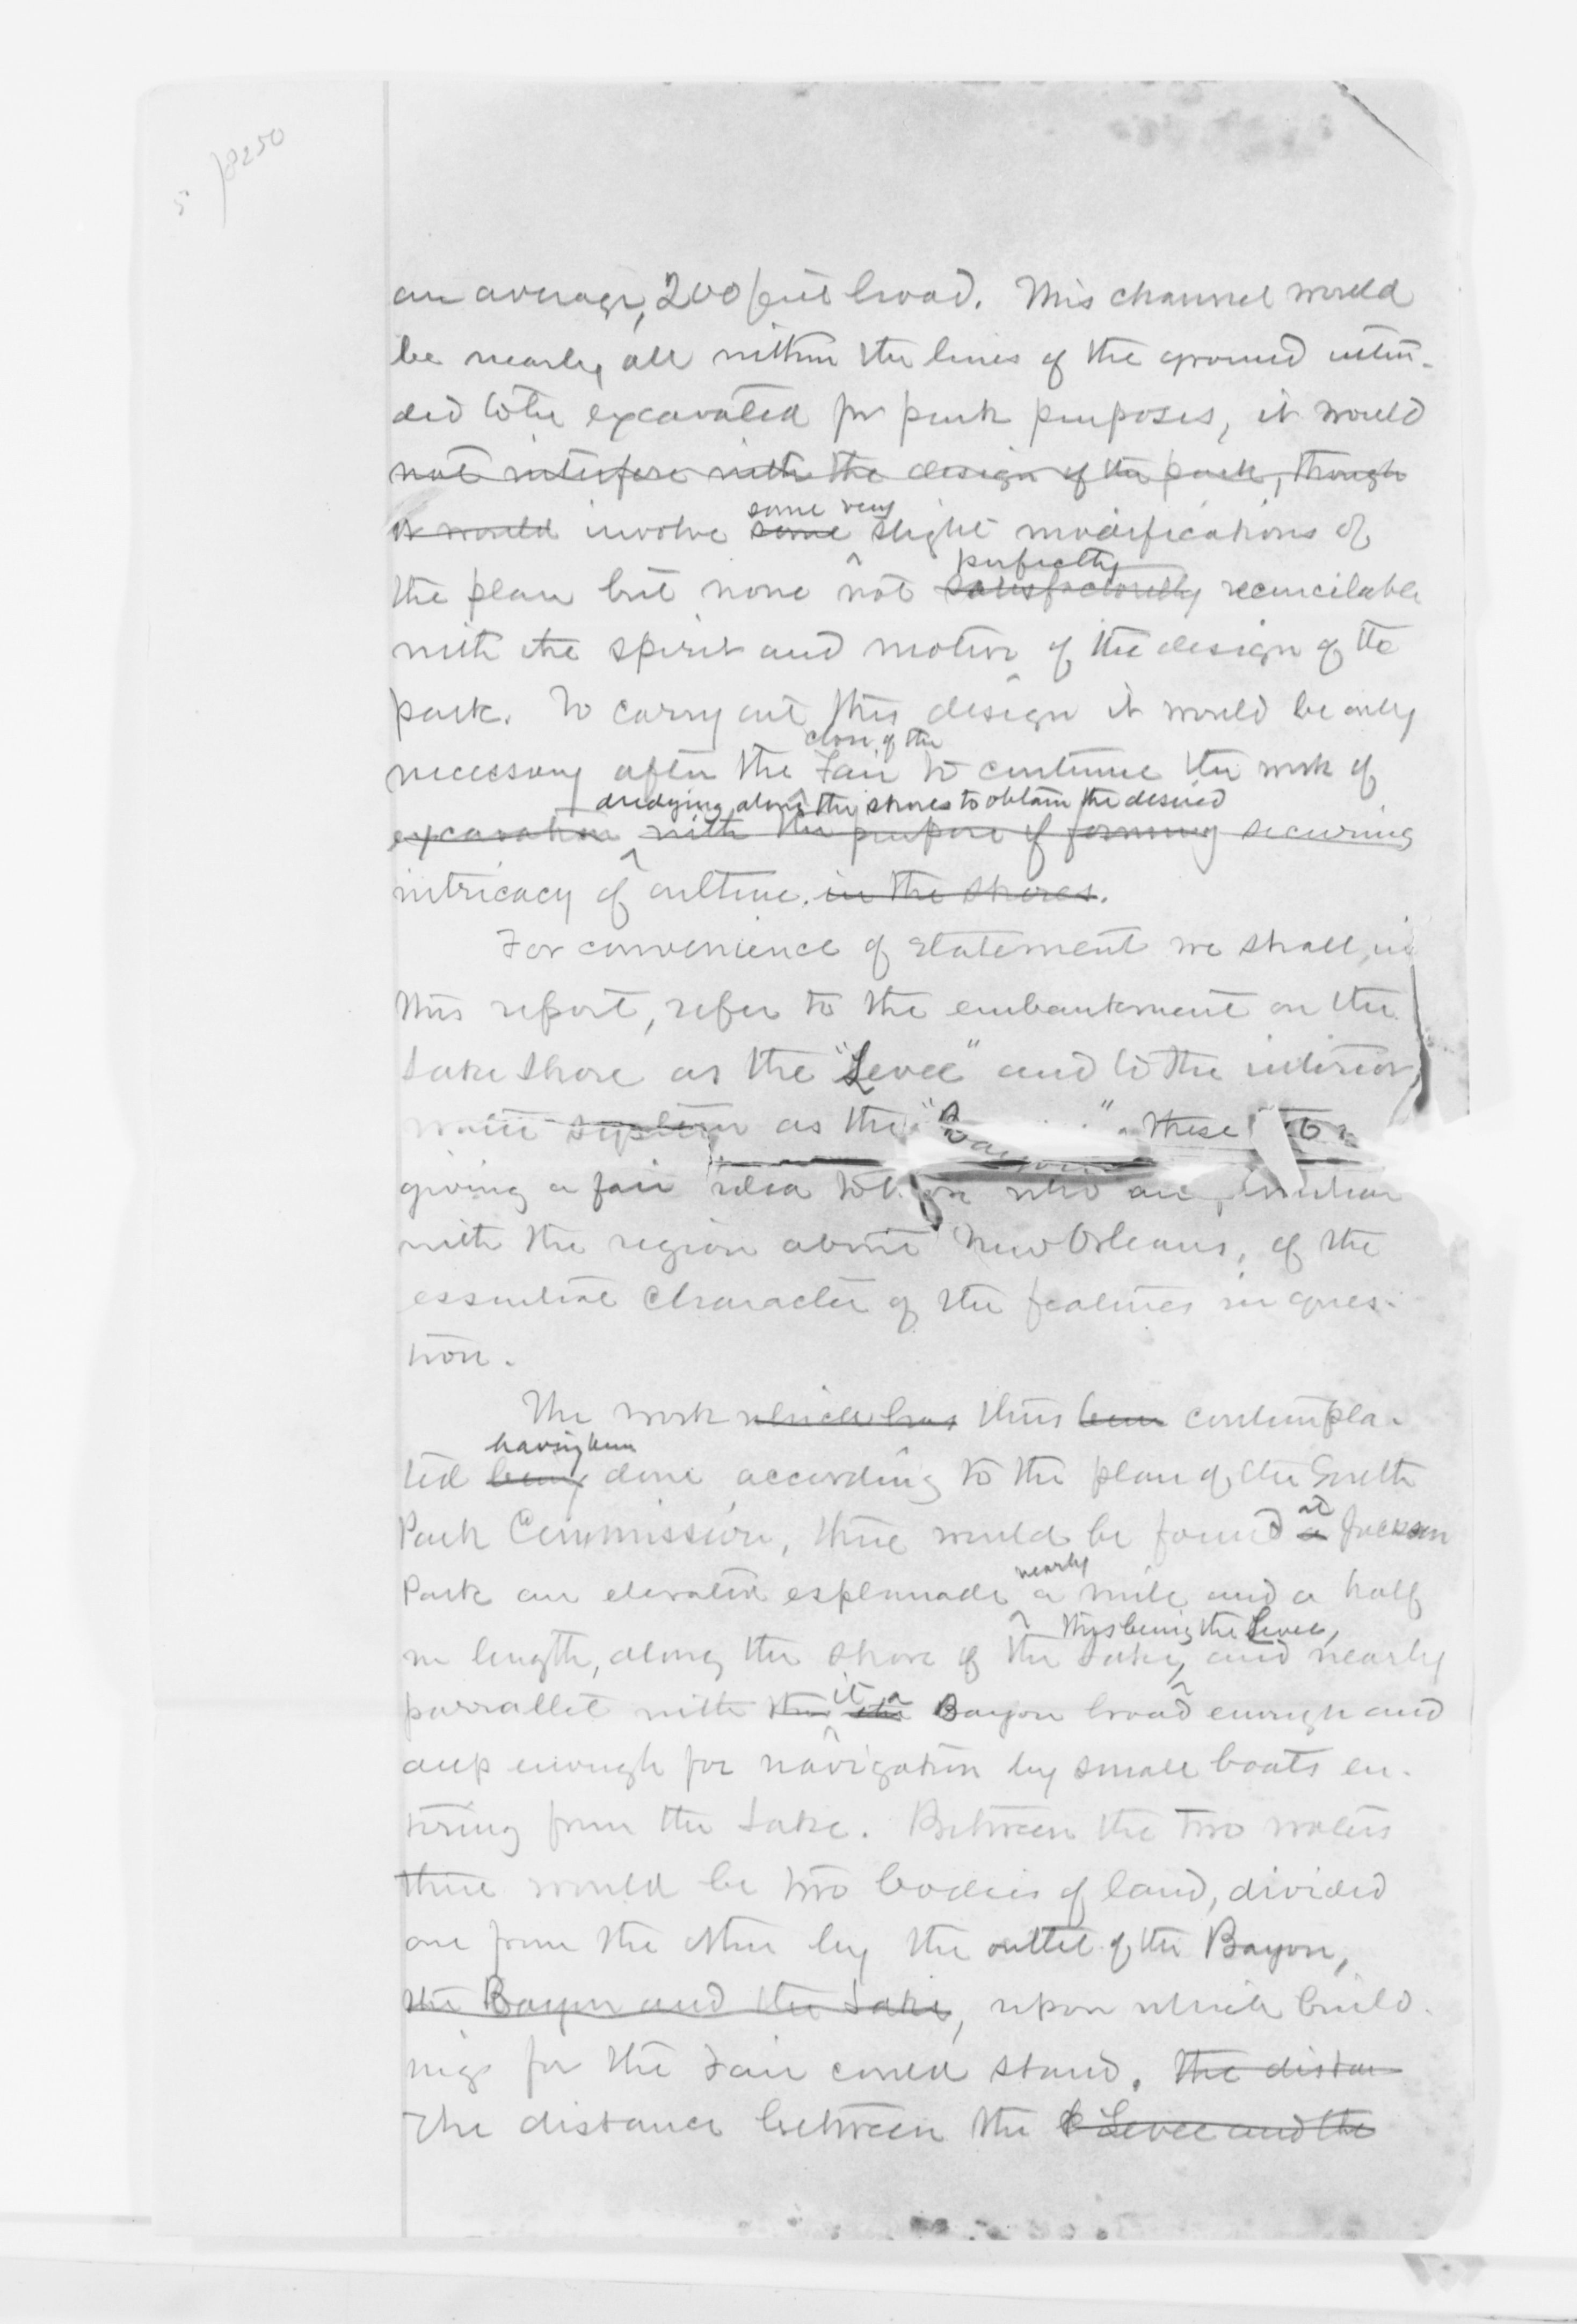 5 p250
an average, 200 feet broad. This channel would
be nearly all within the lines of the ground inten-
ded to be excavated for park purposes, it would
not interfere with the design of the park, though
it would involve some slight modifications of
some very
the plan but none not satisfactorily reconcilable
perfectly
with the spirit and motive of the design of the
park. To carry out this design it would be only
necessary after the Fair to continue the work of
close of the
dredging along the shores to obtain the desired
excavation with the purpose of forming securing
intricacy of outline. in the shores.
For convenience of statement we shall, in
this report, refer to the embankment on the
Lake Shore as the "Levee" and to the interior
water system as the " " These
giving a fair idea to who are familiar
with the region about New Orleans, of the
essential character of the features in ques-
tion.
The work which has thus been contempla-
having been
ted being done according to the plan of the South
Park Commission, there would be found a Jackson
at
Park an elevated esplanade a mile and a half
nearly
this being the Levee,
in length, along the shore of the Lake, and nearly
parrallel with the the Bayou broad enough and
it a
deep enough for navigation by small boats en-
tering from the Lake. Between the two waters
there would be two bodies of land, divided
one from the other by the outlet of the Bayou,
the Bayou and the Lake, upon which build-
ings for the Fair could stand. The distan
The distance between the Levee and the